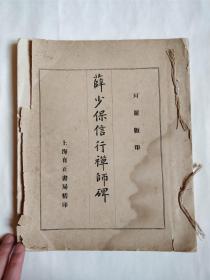 珂羅版印
薛少保信行禪師碑
上海有正書局精印